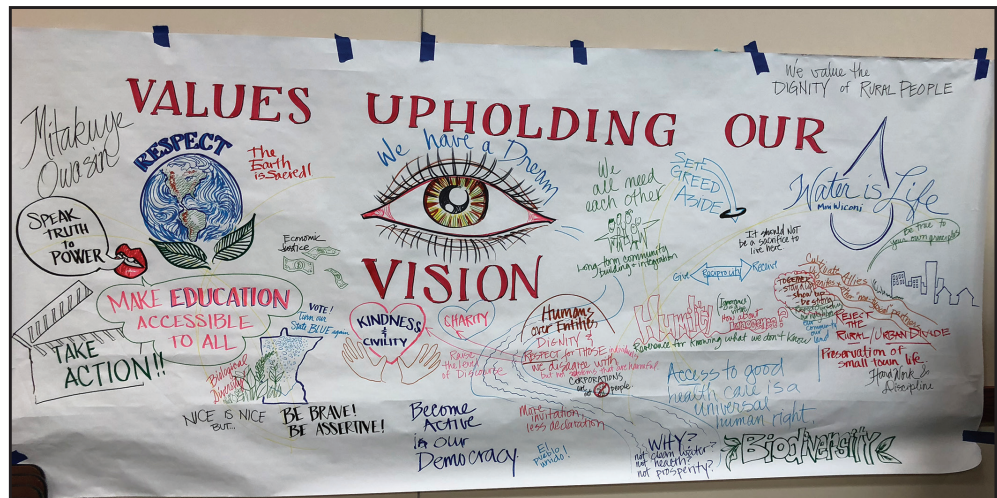 VALUES UPHOLDING OUR
VISION
We value the
DIGNITY of RURAL PEOPLE
Mitakuye
Owasin
RESPECT
The
Earth
is Sacred!
We have a Dream
We
all need
each other
SET
GREED
ASIDE
Water is Life
Mni Wiconi
Be true to
your own
SPEAK
TRUTH
to
POWER
Economic
Justice
Long-term community
building + integration
It should NOT
be a sacrifice to
live here
Give
Reciprocity
Receive
MAKE EDUCATION
ACCESSIBLE
TO ALL
VOTE!
Turn our
State BLUE again
KINDNESS
&
CIVILITY
CHARITY
Humans
over Entities
DIGNITY &
RESPECT for THOSE
we disagree with
but not systems that are harmful
CORPORATIONS
are not people
Raise
the level
of Discourse
Humility
How about
Reverence for knowing what we don't know
TOGETHER
show up
Allies
REJECT
THE
RURAL/URBAN DIVIDE
Preservation of
small town life
Hard Work &
Discipline
TAKE
ACTION!!
Biological
Diversity
NICE IS NICE
BUT...
BE BRAVE!
BE ASSERTIVE!
Become
Active
in Our
Democracy
More
invitation,
less declaration
El
pueblo
unido!
Access to good
health care is a
universal
human right.
WHY?
not clean water?
not health?
not prosperity?
Biodiversity